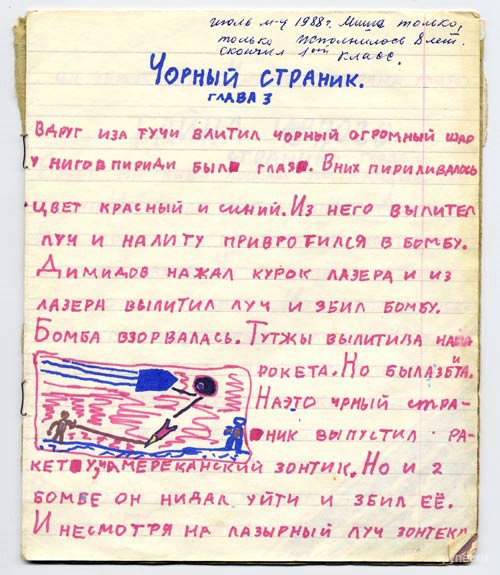 июль м-ц 1988г. Миша только,
только исполнилось 8 лет.
скончил 1ый класс.
ЧОРНЫЙ СТРАНИК.
ГЛАВА 3
ВДРУГ ИЗА ТУЧИ ВЛИТИЛ ЧОРНЫЙ ОГРОМНЫЙ ШАР
У НИГО ВПИРИДИ БЫЛО ГЛАЗО. ВНИХ ПИРИЛИВАЛОСЬ
ЦВЕТ КРАСНЫЙ И СИНИЙ. ИЗ НЕГО ВЫЛИТЕЛ
ЛУЧ И НАЛИТУ ПРИВРОТИЛСЯ В БОМБУ.
ДИМИДОВ НАЖАЛ КУРОК ЛАЗЕРА И ИЗ
ЛАЗЕРА ВЫЛИТИЛ ЛУЧ И ЗБИЛ БОМБУ.
БОМБА ВЗОРВАЛАСЬ. ТУТЖЫ ВЫЛИТИЛА НАША
РОКЕТА. НО БЫЛАЗБИТА.
НАЭТО ЧРНЫЙ СТРА-
НИК ВЫПУСТИЛ РА-
КЕТУ, НАМЕРЕКАНСКИЙ ЗОНТИК. НО И 2
БОМБЕ ОН НИДАЛ УЙТИ И ЗБИЛ ЕЁ.
И НЕСМОТРЯ НА ЛАЗЫРНЫЙ ЛУЧ ЗОНТЕКА